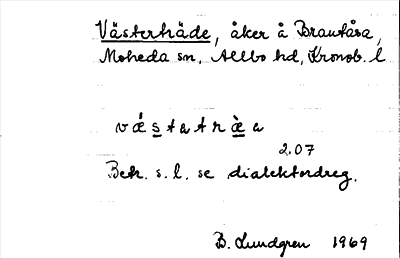 Västerhäde, åker å Brantåsa,
Moheda sn, Allbo hd, Kronob. l
2.07
Bet. s. l. se dialektordreg.
B. Lundgren 1969